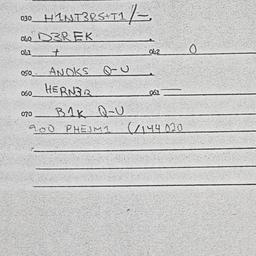 030 H1NT3RS+T1/-,
040 D3REK
041 + 042 O
050 ANDKS Q-U
060 HERN3R 061 —
070 B1K Q-U
900 PHEJM1 (/144 020